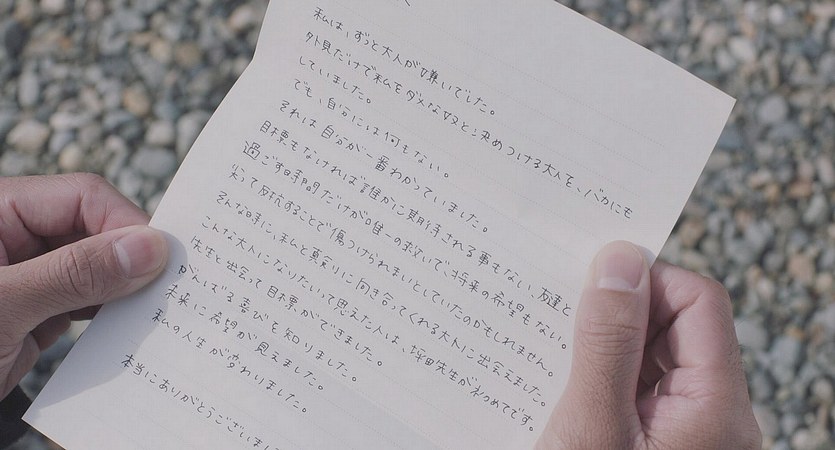 私は、ずっと大人が嫌いでした。
外見だけで私をダメな奴と決めつける大人を、バカにも
していました。
でも、自分には何もない。
それは自分が一番わかっていました。
目標もなければ誰かに期待される事もない、友達と
過ごす時間だけが唯一の救いで、将来の希望もない。
尖って反抗することで傷つけられまいとしていたのかもしれません。
そんな時に、私と真剣に向き合ってくれる大人に出会えました。
こんな大人になりたいって思えた人は、坪田先生が初めてです。
先生と出会って目標ができました。
がんばる喜びを知りました。
未来に希望が見えました。
私の人生が変わりました。
本当にありがとうございまし